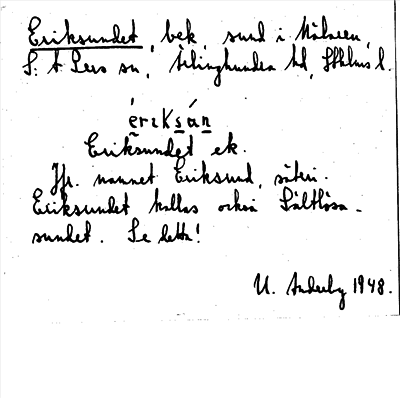 Eriksundet, bek, sund i Mälaren,
S:t Pers sn, Ärlinghundra hd, Sthlms l.
ériksán
Eriksundet ek.
Jfr. namnet Eriksund, säteri.
Eriksundet kallas också Saltlösa-
sundet. Se detta!
U. Anderby 1948.